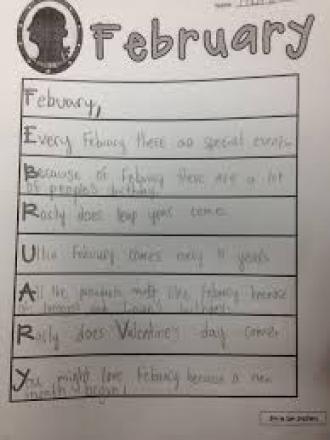 February
Febuary,
Every Febuary there are special events.
Because of Febuary there are a lot
of people's birthday.
Rarly does leap years come.
Febuary comes every years
All the presidents might like Febuary because
birthdays.
Rarly does Valentine's day come.
You might love Febuary because a new
month begin!